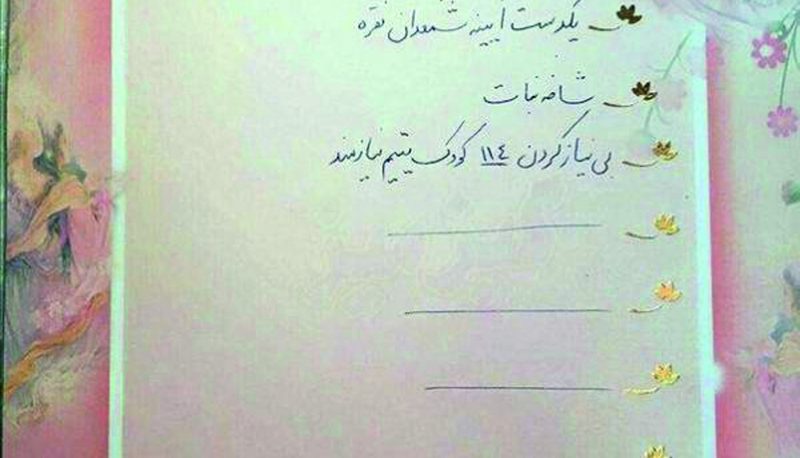 یکدست آیینه شمعدان نقره
شاخه نبات
بی نیاز کردن ۱۱۴ کودک یتیم نیازمند